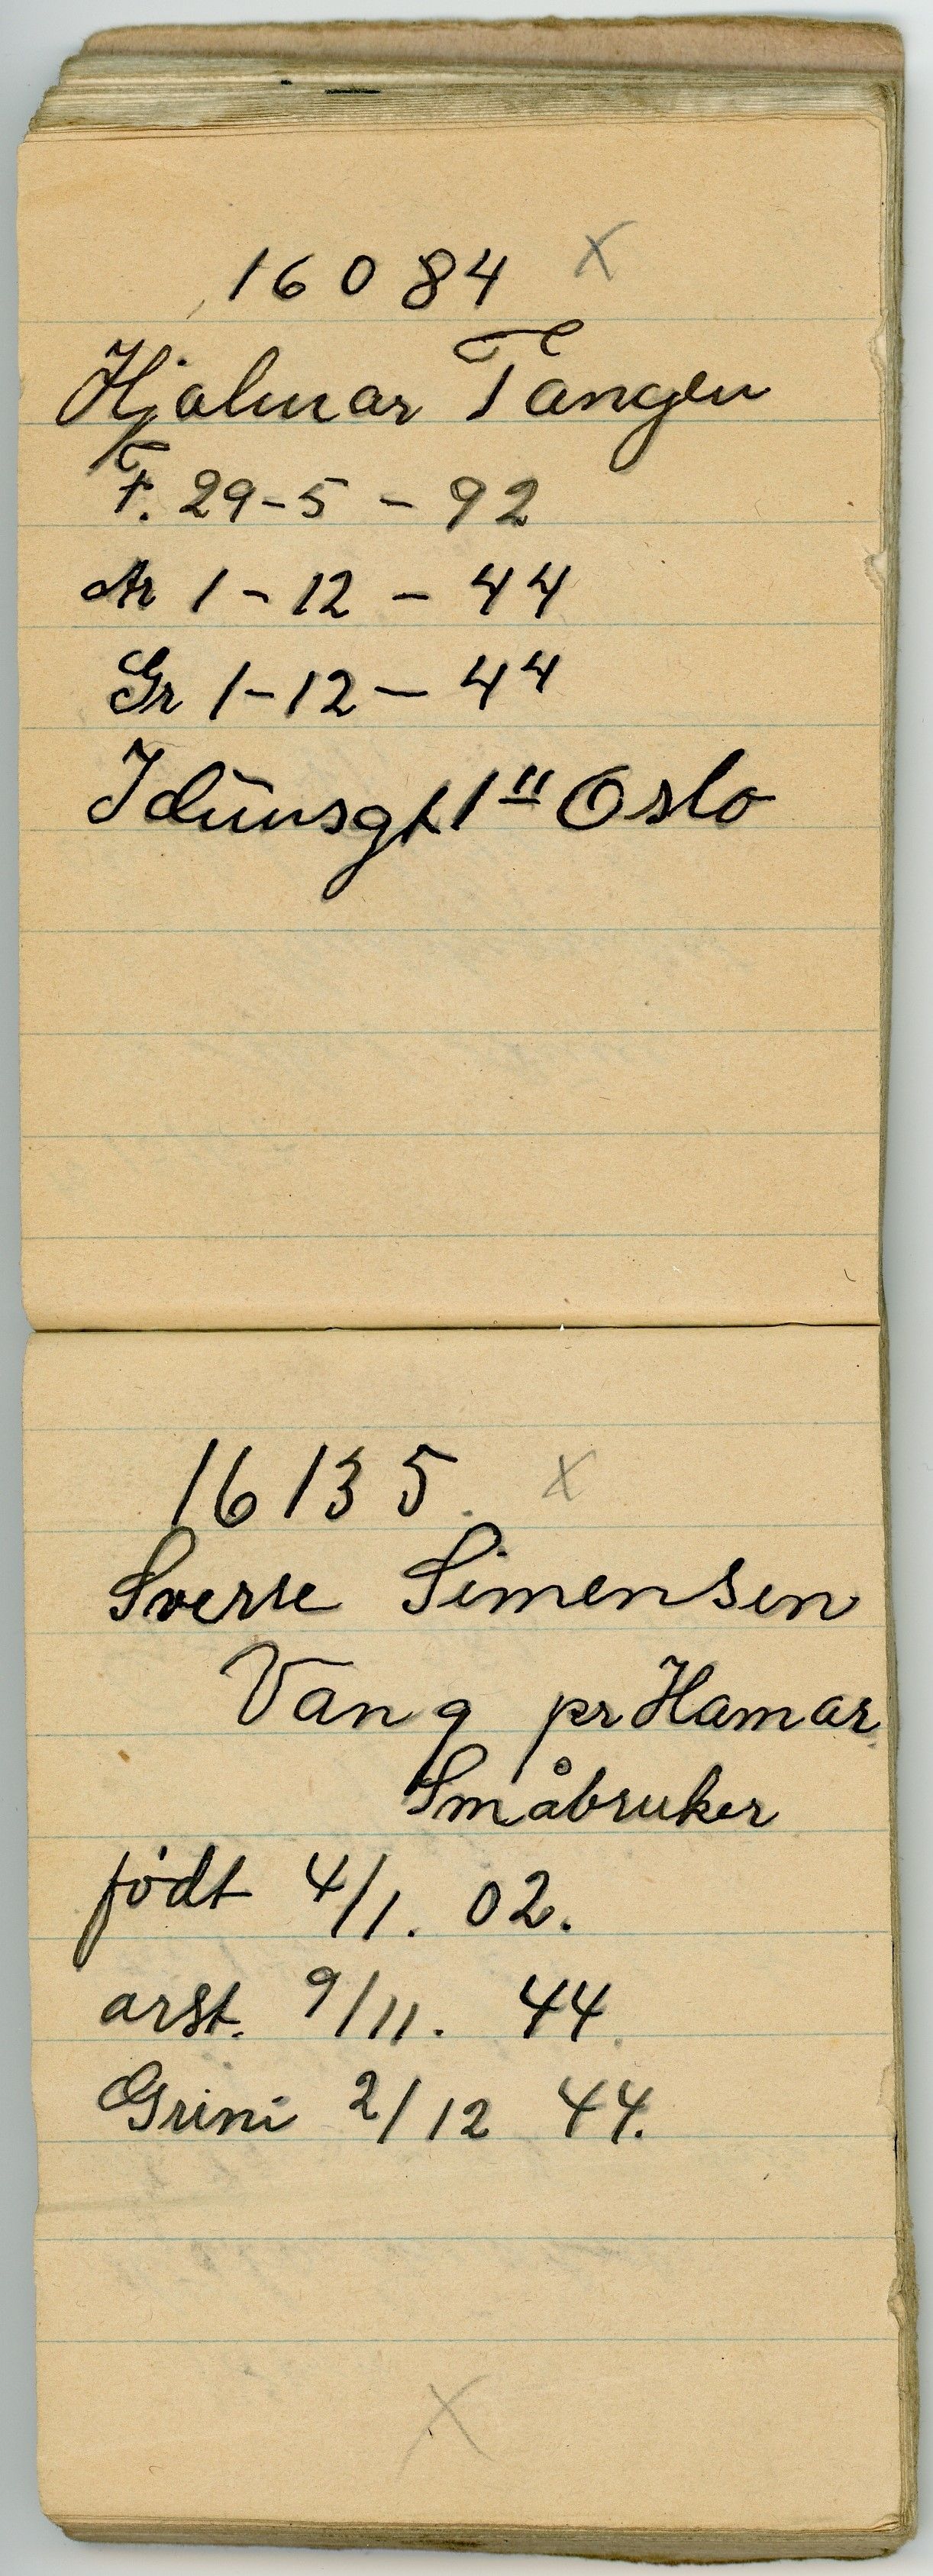 16084 x
Hjalmar Tangen
F. 29-5-92
Ar 1-12-44
Gr 1-12-44
Idunsgt 1 II Oslo
16135. x
Sverre Simensen
Vang pr Hamar.
Småbruker
født 4/1. 02.
arst. 9/11. 44.
Grini 2/12 44.
X